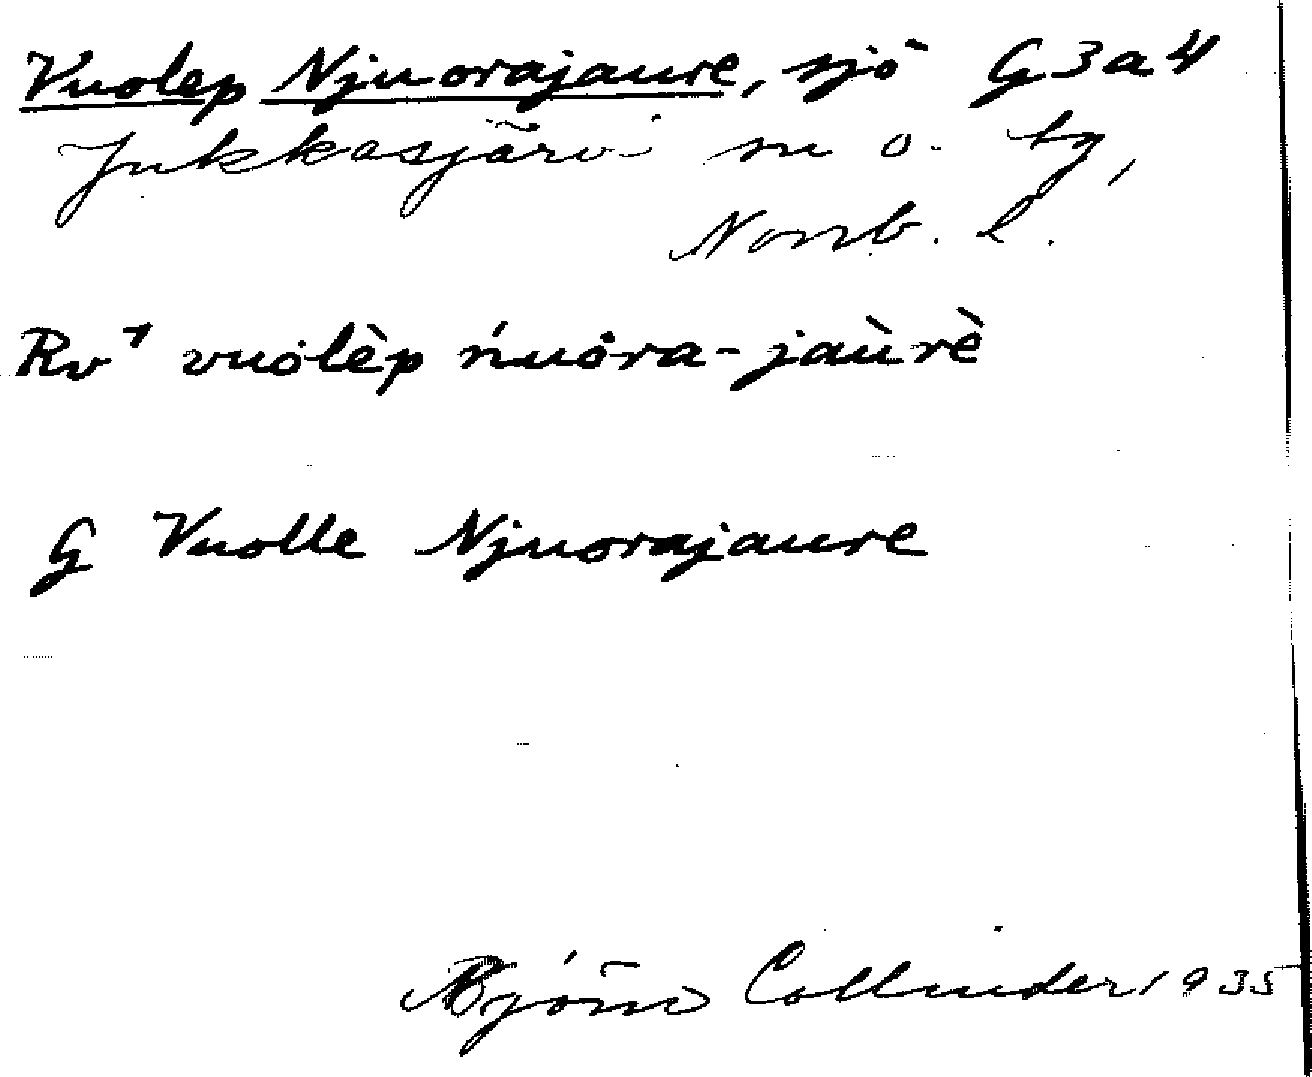 Vuolep Njuorajaure, sjö G3a4
Jukkasjärvi sn o. tg,
Norrb. l.
Rv⁊ vuȯlèp ńuȯra-jaùrè
G Vuolle Njuorajaure
Björn Collinder 1935